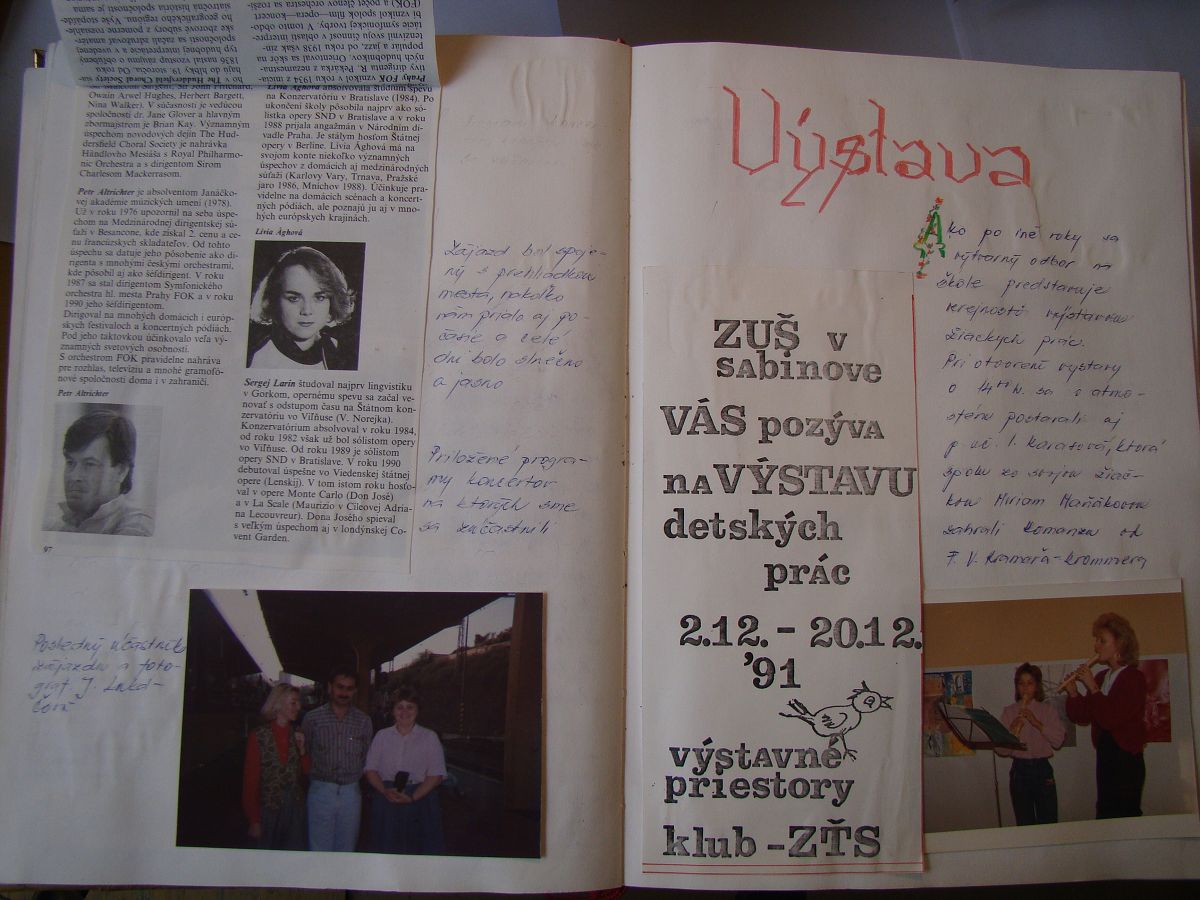 ho v The Huddersfield Choral Society
hajú do hĺbky 19. storočia. Od roku
1836 nastal vzostup záujmu o obľúbený
typ hudobnej interpretácie a v uvedenej
ské zborové súbory z pomerne rozsiahle-
ho geografického regiónu. Vyše
štartná história spoločnosti je sama
Prahy FOK vznikol v roku 1934 z inicia-
tívy dirigenta R. Pekárka z nezamestna-
ných hudobníkov. Orientoval sa skôr na
populár a jazz, od roku 1938 však zin-
tenzívnil svoju činnosť v oblasti interpre-
tácie symfonickej tvorby. V tomto obdo-
bí vznikol spolok film—opera—koncert
(FOK) a počet členov orchestra sa rozší-
Owain Arwel Hughes, Herbert Bargett,
Nina Walker). V súčasnosti je vedúcou
spoločnosti dr. Jane Glover a hlavným
zbormajstrom je Brian Kay. Významným
úspechom novodobých dejín The Hud-
dersfield Choral Society je nahrávka
Händlovho Mesiáša s Royal Philharmo-
nic Orchestra a s dirigentom Sirom
Charlesom Mackerrasom.
Petr Altrichter je absolventom Janáčko-
vej akadémie múzických umení (1978).
Už v roku 1976 upozornil na seba úspe-
chom na Medzinárodnej dirigentskej sú-
ťaži v Besancone, kde získal 2. cenu a ce-
nu francúzskych skladateľov. Od tohto
úspechu sa datuje jeho pôsobenie ako di-
rigenta s mnohými českými orchestrami,
kde pôsobil aj ako šéfdirigent. V roku
1987 sa stal dirigentom Symfonického
orchestra hl. mesta Prahy FOK a v roku
1990 jeho šéfdirigentom.
Dirigoval na mnohých domácich i európ-
skych festivaloch a koncertných pódiách.
Pod jeho taktovkou účinkovalo veľa vý-
znamných svetových osobností.
S orchestrom FOK pravidelne nahráva
pre rozhlas, televíziu a mnohé gramofó-
nové spoločnosti doma i v zahraničí.
Petr Altrichter
97
Lívia Ághová absolvovala štúdium spevu
na Konzervatóriu v Bratislave (1984). Po
ukončení školy pôsobila najprv ako só-
listka opery SND v Bratislave a v roku
1988 prijala angažmán v Národním di-
vadle Praha. Je stálym hosťom Štátnej
opery v Berlíne. Lívia Ághová má na
svojom konte niekoľko významných
úspechov z domácich aj medzinárodných
súťaží (Karlovy Vary, Trnava, Pražské
jaro 1986, Mníchov 1988). Účinkuje pra-
videlne na domácich scénach a koncert-
ných pódiách, ale poznajú ju aj v mno-
hých európskych krajinách.
Lívia Ághová
Sergej Larin študoval najprv lingvistiku
v Gorkom, opernému spevu sa začal ve-
novať s odstupom času na Štátnom kon-
zervatóriu vo Viľňuse (V. Norejka).
Konzervatórium absolvoval v roku 1984,
od roku 1982 však už bol sólistom opery
vo Viľňuse. Od roku 1989 je sólistom
opery SND v Bratislave. V roku 1990
debutoval úspešne vo Viedenskej štátnej
opere (Lenskij). V tom istom roku hosťo-
val v opere Monte Carlo (Don José)
a v La Scale (Maurizio v Cileovej Adria-
na Lecouvreur). Dona Josého spieval
s veľkým úspechom aj v londýnskej Co-
vent Garden.
Zájazd bol spoje-
ný s prehliadkou
mesta, nakoľko
nám prialo aj po-
časie a celé
dni bolo slnečno
a jasno
Priložené progra-
my koncertov
na ktorých sme
sa zúčastnili
Poslednný účastník
zájazdu a foto-
graf J.
Výstava
Ako po iné roky sa
výtvarný odbor na
škole predstavuje
verejnosti výstavou
žiackych prác.
Pri otvorení výstavy
o 14 h. sa o atmo-
sféru postarali aj
p. uč. I. Karasová, ktorá
spolu so svojou žiač-
kou Miriam Maňákovou
zahrali Romanzu od
F. V. Kramařa-Krommera
ZUŠ v
sabinove
VÁS pozýva
na VÝSTAVU
detských
prác
2.12. – 20.12.
'91
výstavné
priestory
klub – ZŤS